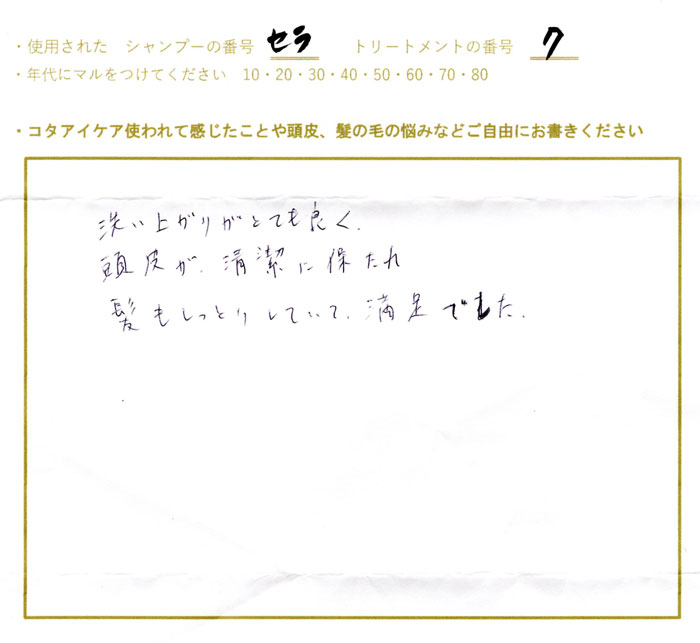 ・使用された シャンプーの番号 セラ トリートメントの番号 7
・年代にマルをつけてください 10・20・30・40・50・60・70・80
・コタアイケア使われて感じたことや頭皮、髪の毛の悩みなどご自由にお書きください
洗い上がりがとても良く、
頭皮が、清潔に保たれ
髪もしっとりしていて、満足でした。